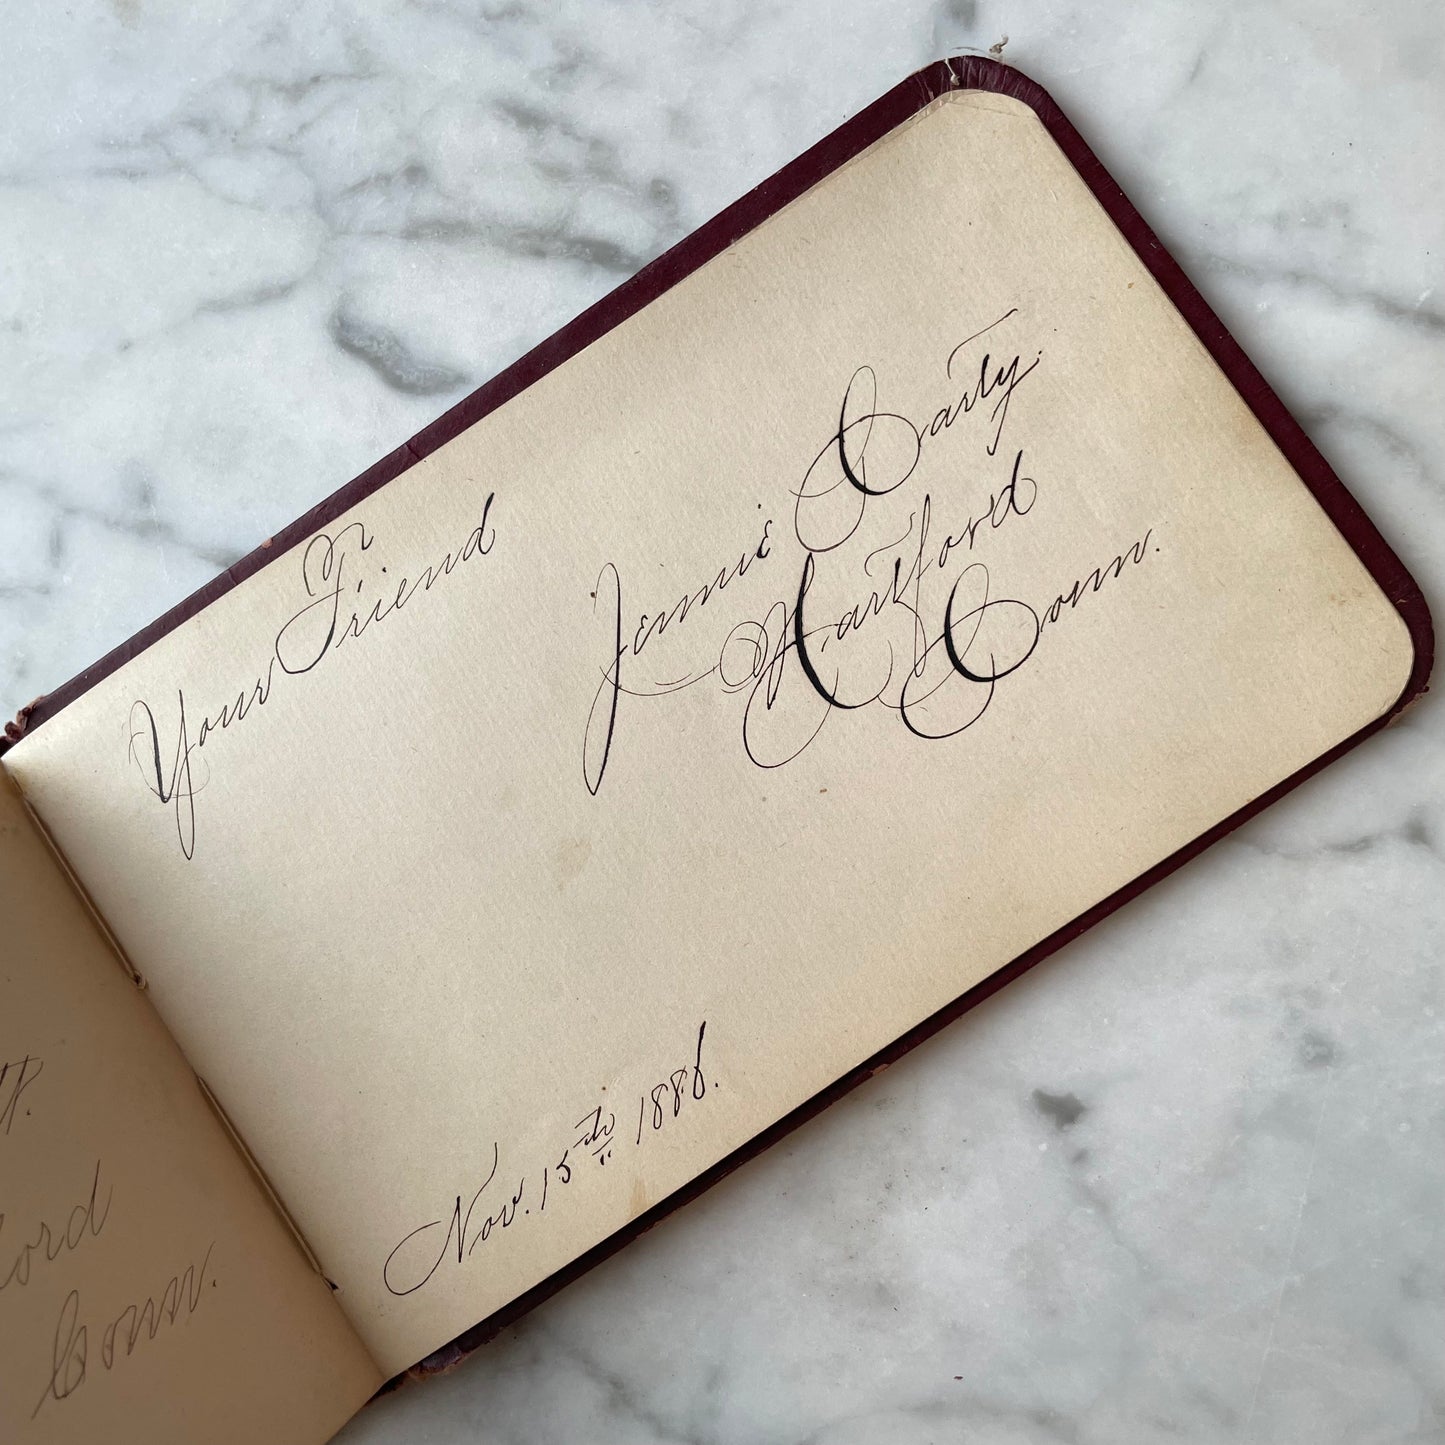 Your Friend
Jennie Carty.
Hartford
Conn.
Nov. 15th 1886.
Conn.